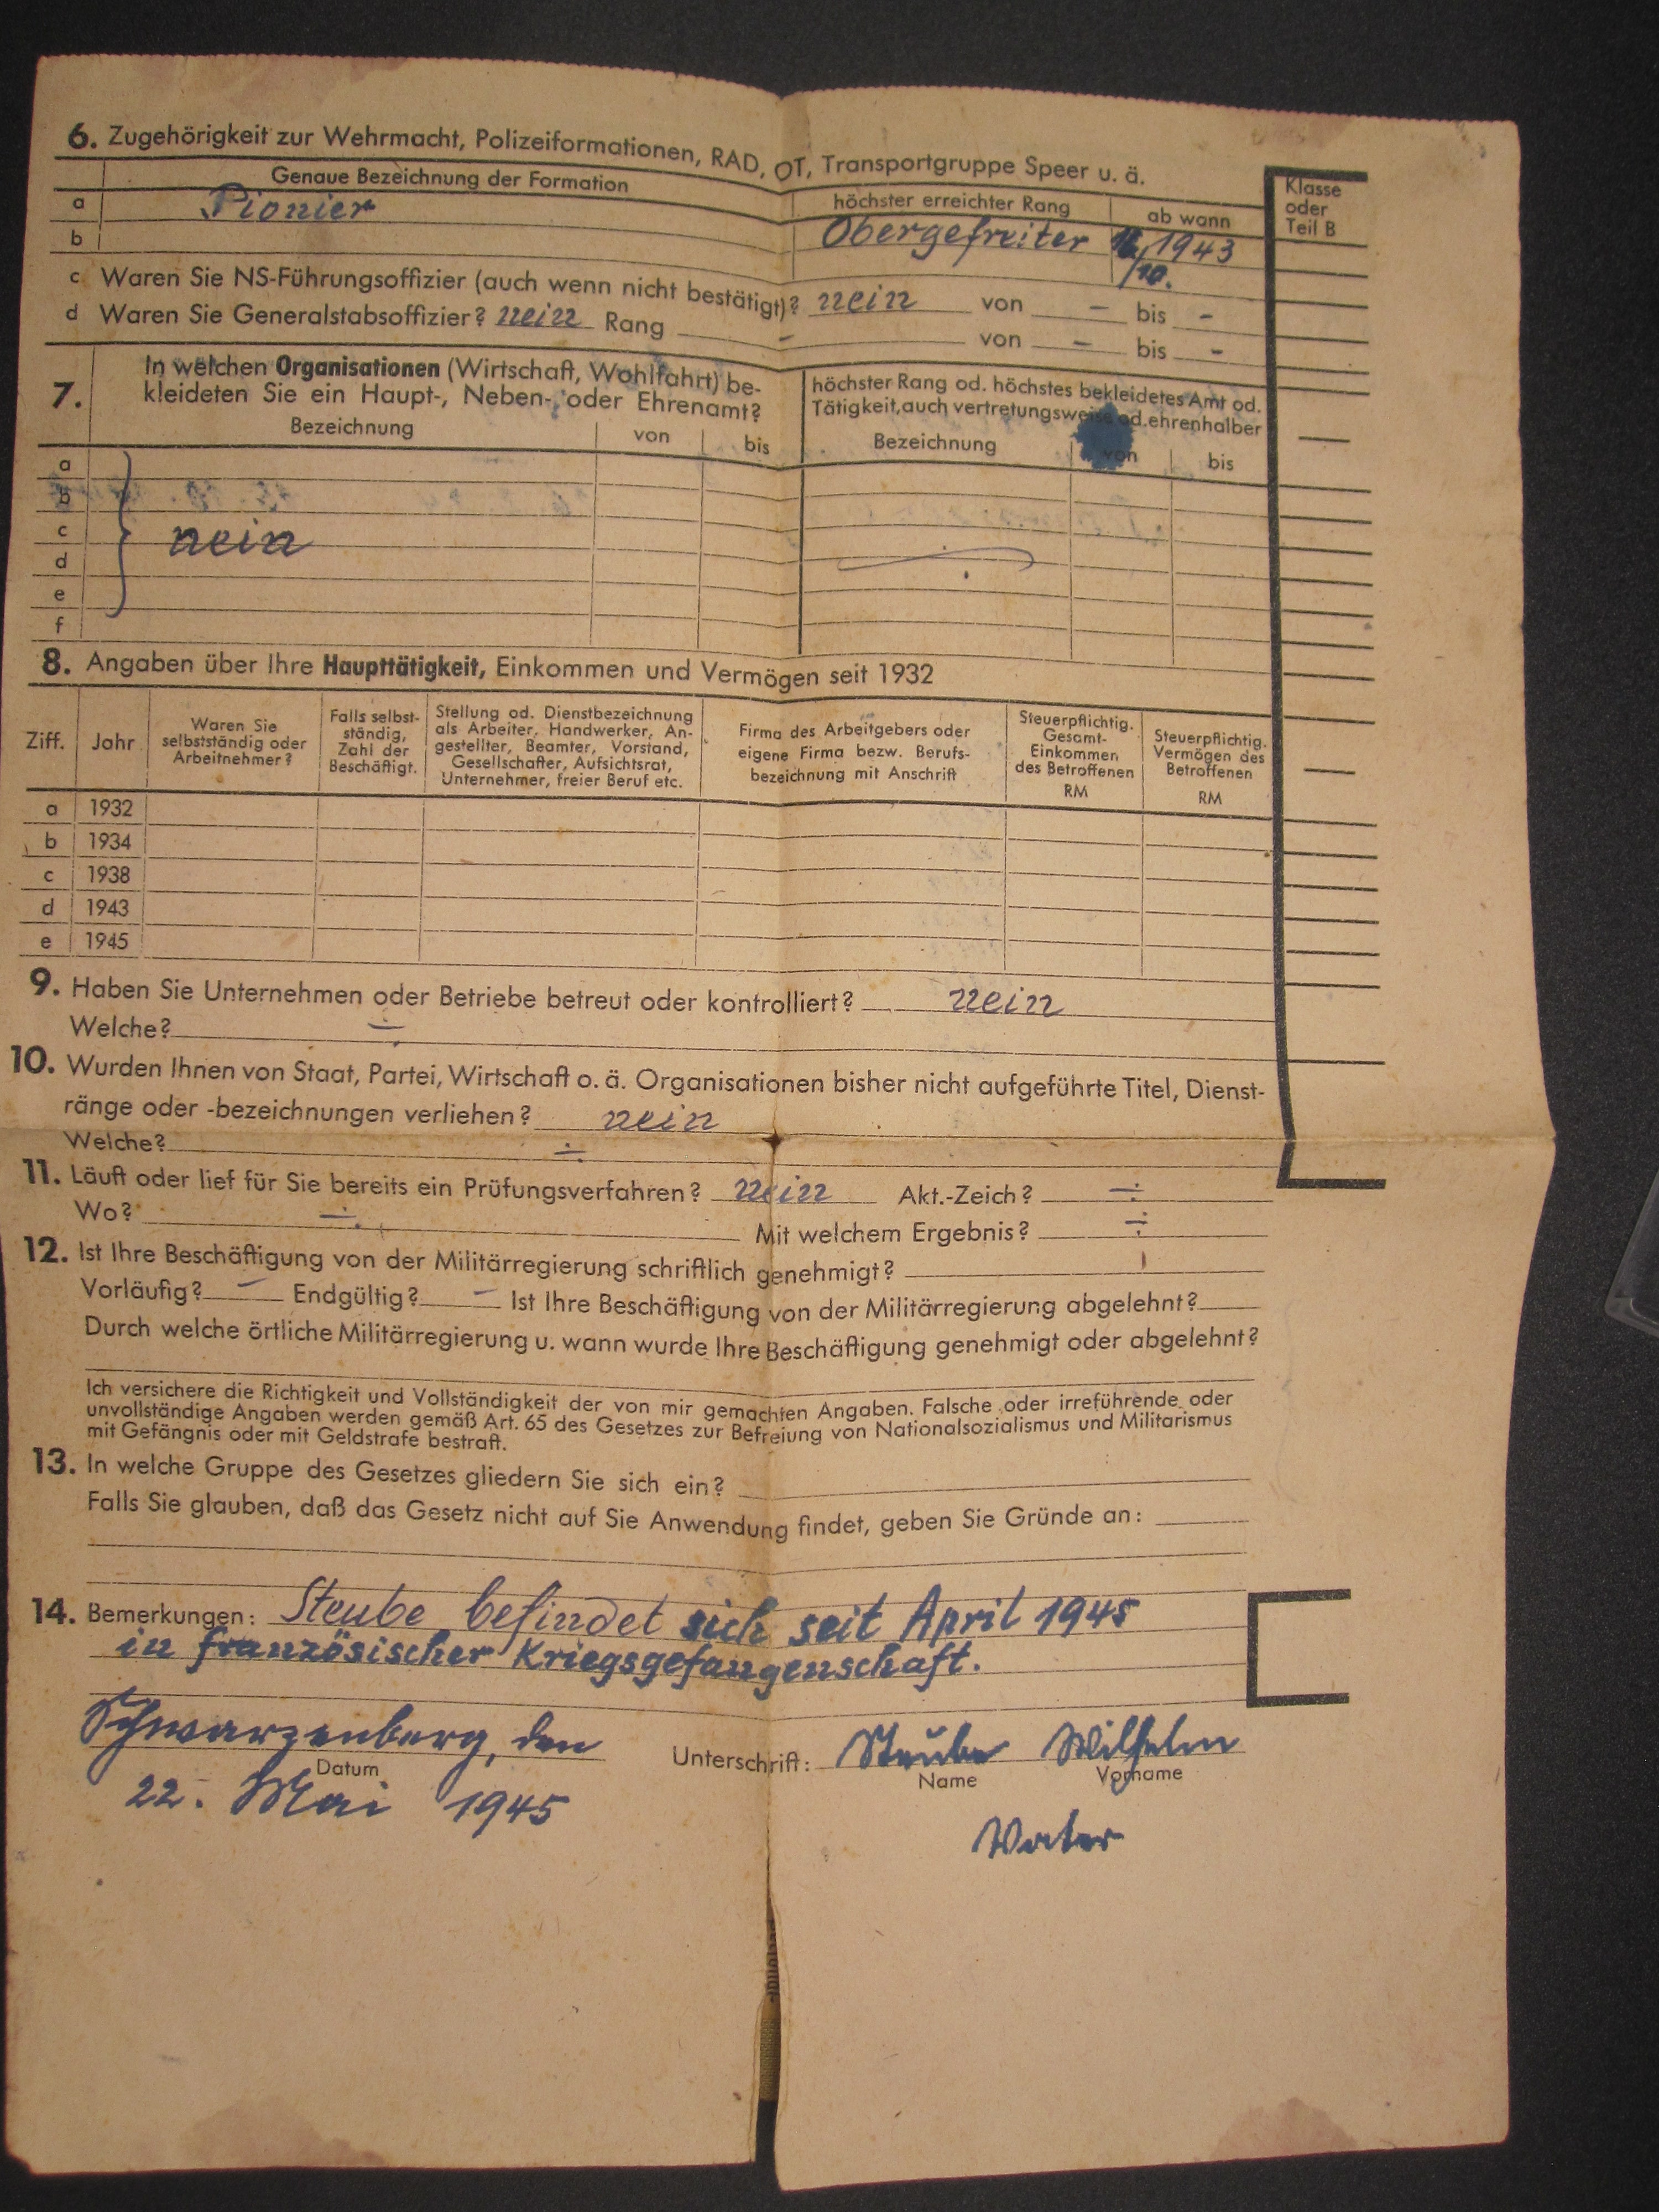 6. Zugehörigkeit zur Wehrmacht, Polizeiformationen, RAD, OT, Transportgruppe Speer u. ä.
Genaue Bezeichnung der Formation höchster erreichter Rang ab wann
Klasse
oder
Teil B
a Pionier Obergefreiter 1943
b 10.
c Waren Sie NS-Führungsoffizier (auch wenn nicht bestätigt)? nein von – bis –
d Waren Sie Generalstabsoffizier? nein Rang – von – bis –
7. In welchen Organisationen (Wirtschaft, Wohlfahrt) be-
kleideten Sie ein Haupt-, Neben-, oder Ehrenamt?
höchster Rang od. höchstes bekleidetes Amt od.
Tätigkeit, auch vertretungsweise od. ehrenhalber
Bezeichnung von bis Bezeichnung von bis
a
b
c nein
d
e
f
8. Angaben über Ihre Haupttätigkeit, Einkommen und Vermögen seit 1932
Ziff.
Jahr
Waren Sie
selbstständig oder
Arbeitnehmer?
Falls selbst-
ständig,
Zahl der
Beschäftigt.
Stellung od. Dienstbezeichnung
als Arbeiter, Handwerker, An-
gestellter, Beamter, Vorstand,
Gesellschafter, Aufsichtsrat,
Unternehmer, freier Beruf etc.
Firma des Arbeitgebers oder
eigene Firma bezw. Berufs-
bezeichnung mit Anschrift
Steuerpflichtig.
Gesamt-
Einkommen
des Betroffenen
RM
Steuerpflichtig.
Vermögen des
Betroffenen
RM
a 1932
b 1934
c 1938
d 1943
e 1945
9. Haben Sie Unternehmen oder Betriebe betreut oder kontrolliert? nein
Welche? ÷
10. Wurden Ihnen von Staat, Partei, Wirtschaft o. ä. Organisationen bisher nicht aufgeführte Titel, Dienst-
ränge oder -bezeichnungen verliehen? nein
Welche? ÷
11. Läuft oder lief für Sie bereits ein Prüfungsverfahren? nein Akt.-Zeich? ÷
Wo? ÷ Mit welchem Ergebnis? ÷
12. Ist Ihre Beschäftigung von der Militärregierung schriftlich genehmigt?
Vorläufig? – Endgültig? – Ist Ihre Beschäftigung von der Militärregierung abgelehnt?
Durch welche örtliche Militärregierung u. wann wurde Ihre Beschäftigung genehmigt oder abgelehnt?
Ich versichere die Richtigkeit und Vollständigkeit der von mir gemachten Angaben. Falsche oder irreführende oder
unvollständige Angaben werden gemäß Art. 65 des Gesetzes zur Befreiung von Nationalsozialismus und Militarismus
mit Gefängnis oder mit Geldstrafe bestraft.
13. In welche Gruppe des Gesetzes gliedern Sie sich ein?
Falls Sie glauben, daß das Gesetz nicht auf Sie Anwendung findet, geben Sie Gründe an:
14. Bemerkungen: Steube befindet sich seit April 1945
in französischer Kriegsgefangenschaft.
Schwarzenberg, den Unterschrift: Steube Wilhelm
Datum Name Vorname
22. Mai 1945
Vater